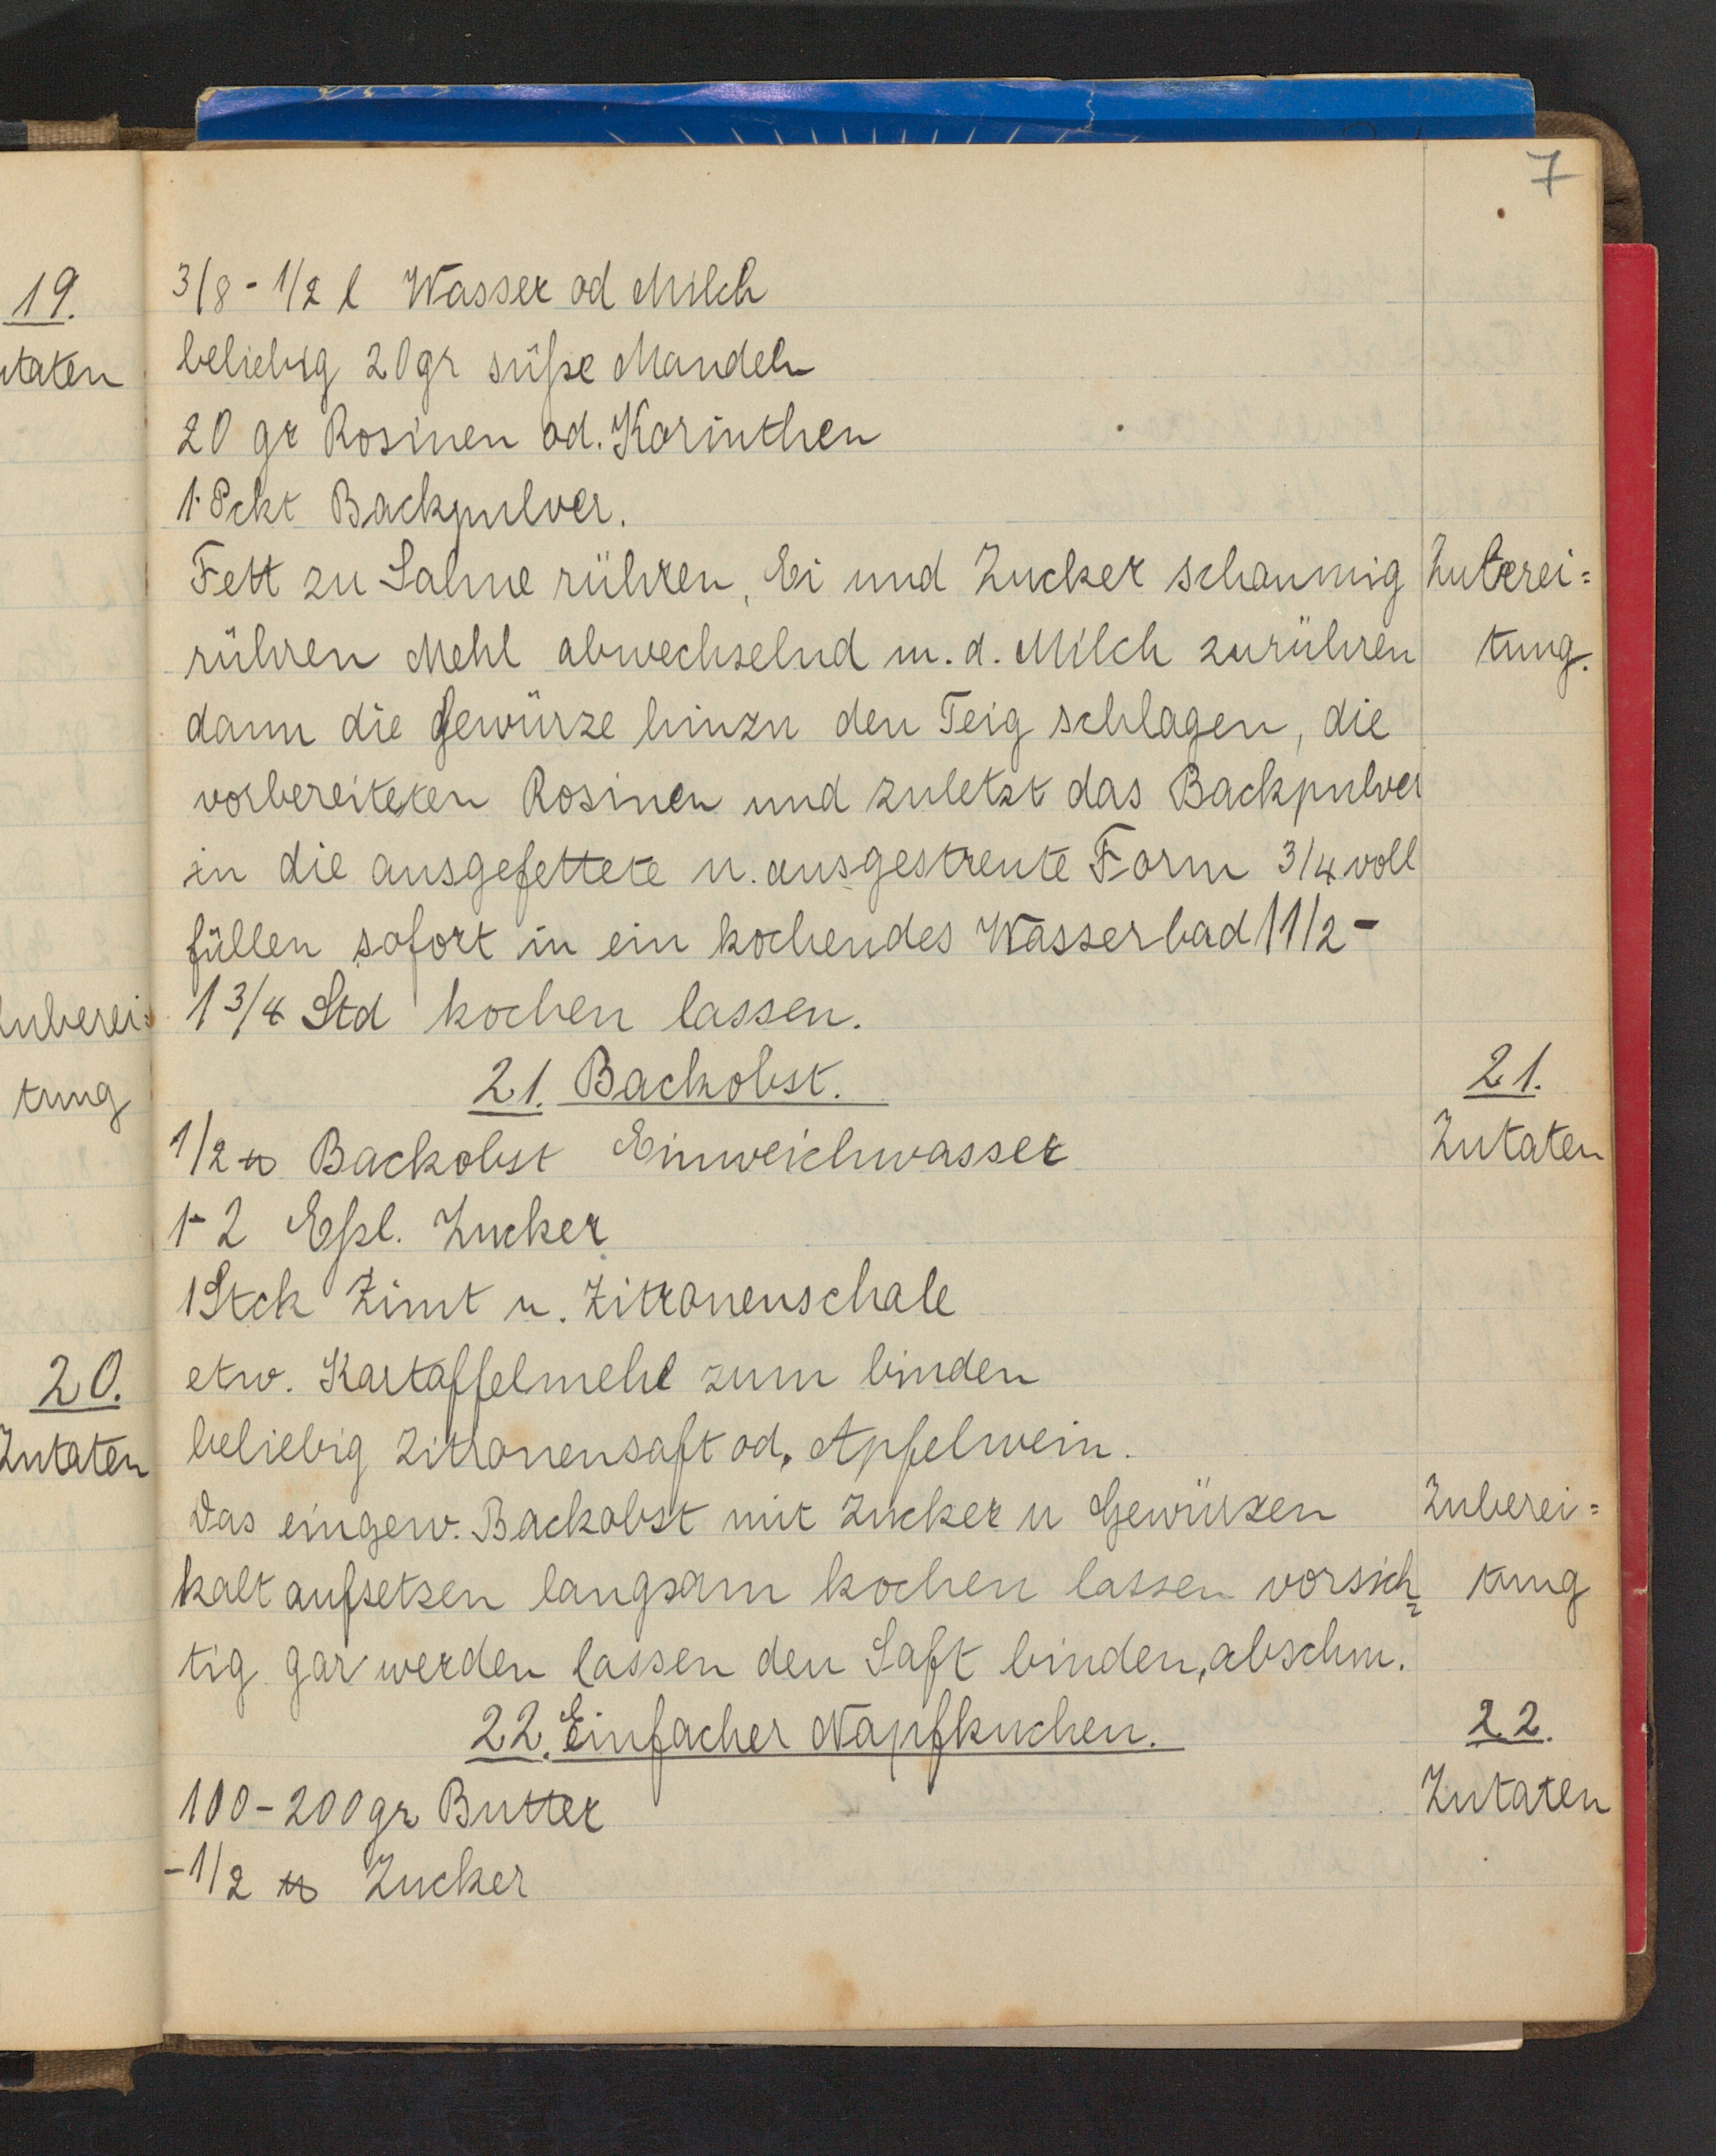 7
19.
utaten
Zuberei=
tung
20.
Zutaten
3/8 - 1/2 l Wasser od Milch
beliebig 20gr süße Mandeln
20 gr Rosinen od. Korinthen
1 Pckt Backpulver.
Fett zu Sahne rühren, Ei und Zucker schaumig
Zuberei=
rühren Mehl abwechselnd m. d. Milch zurühren
tung.
dann die Gewürze hinzu den Teig schlagen, die
vorbereiteten Rosinen und zuletzt das Backpulver
in die ausgefettete u. ausgestreute Form 3/4 voll
füllen sofort in ein kochendes Wasserbad 1 1/2 -
1 3/4 Std kochen lassen.
21. Backobst.
21.
1/2 ℔ Backobst Einweichwasser
Zutaten
1-2 Eßl. Zucker
1 Stck Zimt u. Zitronenschale
etw. Kartoffelmehl zum binden
beliebig Zitronensaft od. Apfelwein.
Das eingew. Backobst mit Zucker u Gewürzen
Zuberei=
kalt aufsetzen langsam kochen lassen vorsich=
tung
tig gar werden lassen den Saft binden, abschm.
22. Einfacher Napfkuchen.
22.
100-200gr Butter
Zutaten
-1/2 ℔ Zucker